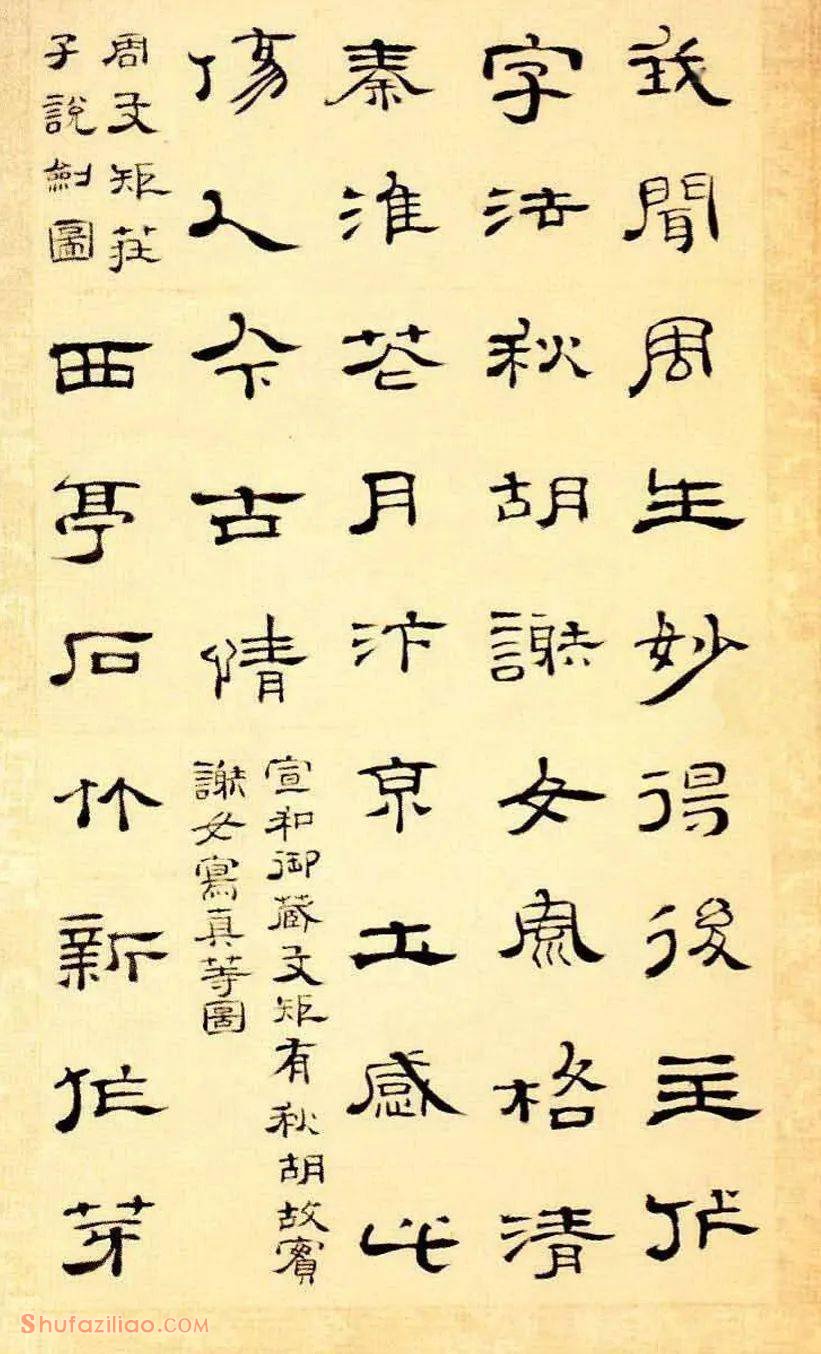 我聞周生妙得後主作
字法秋胡謝女風格清
秦淮花月汴京土感此
傷人今古情
宣和御藏文矩有秋胡故實
謝女寫真等圖
周文矩莊
子說劍圖
西亭石竹新作芽
Shufaziliao.COM